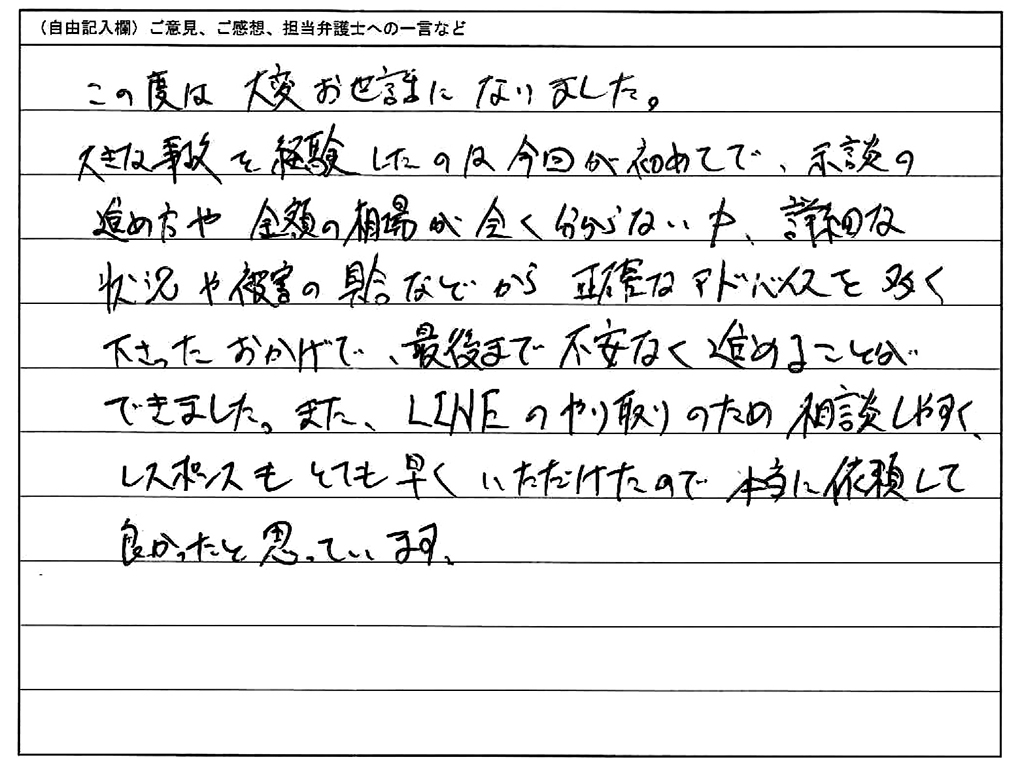 （自由記入欄）ご意見、ご感想、担当弁護士への一言など
この度は大変お世話になりました。
大きな事故を経験したのは今回が初めてで、示談の
進め方や金額の相場が全く分からない中、詳細な
状況や被害の具合などから正確なアドバイスを多く
下さったおかげで、最後まで不安なく進めることが
できました。また、LINEのやり取りのため相談しやすく、
レスポンスもとても早くいただけたので本当に依頼して
良かったと思っています。